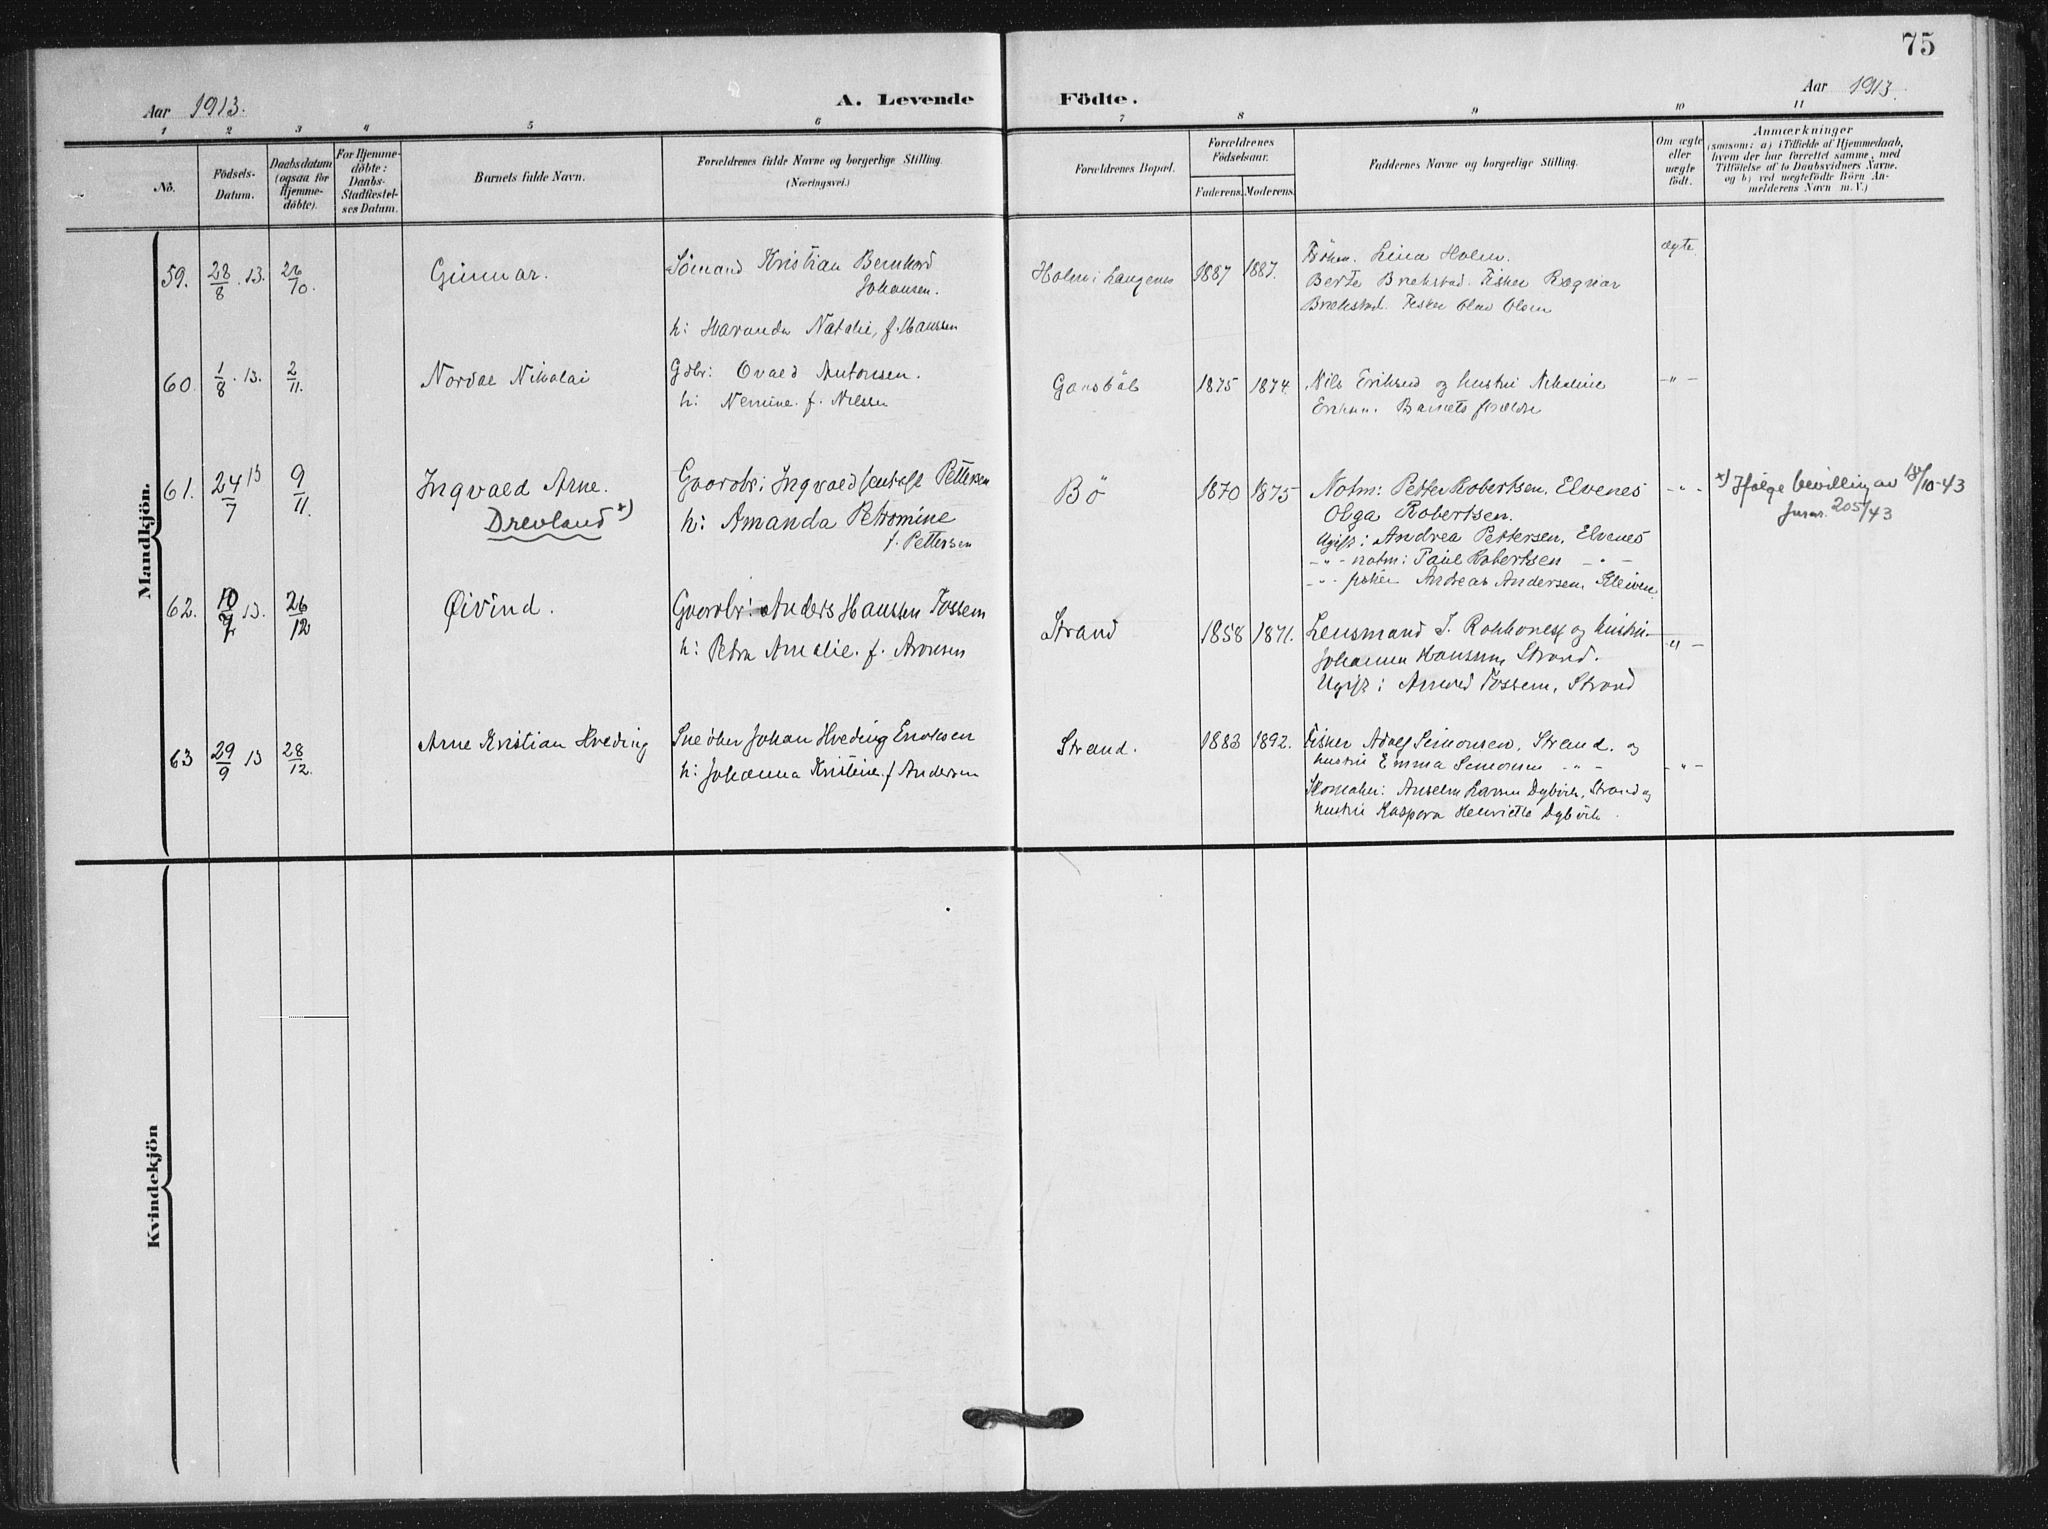 75
Aar 1913.
A. Levende Födte.
Aar 1913.
1 2 3 4 5 6 7 8 9 10 11
No.
Födsels-
Datum.
Daabsdatum
(ogsaa for
Hjemme-
döbte).
For Hjemme-
döbte:
Daabs-
Stadfæstel-
ses Datum.
Barnets fulde Navn.
Forældrenes fulde Navne og borgerlige Stilling.
(Næringsvei.)
Forældrenes Bopæl.
Forældrenes
Födselsaar.
Faderens. Moderens.
Faddernes Navne og borgerlige Stilling.
Om ægte
eller
uægte
födt.
Anmærkninger
(saasom: a) i Tilfælde af Hjemmedaab,
hvem der har forrettet samme, med
Tilföielse af to Daabsvidners Navne.
og b) ved uægtefödte Börn An-
melderens Navn m. V.)
Mandkjön.
59. 28/8 13. 26/10. Gunnar.
Sömand Kristian Bernhard
Johansen.
h: Natalie, f. Hanssen
Holm i Langenes 1887 1887.
Lina Holm.
Berte Brækstad. Fisker Ragnar
Brækstad. Fisker Olav Olsen
ægte
60. 1/8. 13. 2/11. Nordal Nikolai
Gdbr: Ovald Antonsen.
h: f. Nilsen
1875 1874.
Nils Eriksen og hustru Nikoline
Barnets forældre
-"-
61. 24/7 13 9/11. Ingvald Arne.
Drevland x)
Gaardbr: Ingvald Pettersen
h: Amanda Petromine
f. Pettersen
Bö 1870 1875
Notm: Petter Robertsen, Elvenes
Olga Robertsen.
Ugift: Andrea Pettersen, Elvenes
-"- notm: Paul Robertsen -"-
-"- fisker Andreas Andersen, Kleiven.
-"-
x) Ifølge bevilling av 18/10-43
205/43
62. 10/9 13. 26/12 Øivind.
Gaardbr: Anders Hanssen Fossem
h: Petra Amalie. f. Aronsen
Strand 1858 1871.
Lensmand og hustru
Johanna Hanssen, Strand.
Ugift: Fossem, Strand
-"-
63 29/9 13 28/12. Arne Kristian Hveding
Johan Hveding
h: Johanna Kristine f. Andersen
Strand. 1883 1892.
Fisker Adolf Simonsen, Strand. og
hustru Emma Simonsen -"-
Skomaker: Anselm Larsen Dybvik, Strand og
hustru Kaspara Henriette Dybvik.
-"-
Kvindekjön